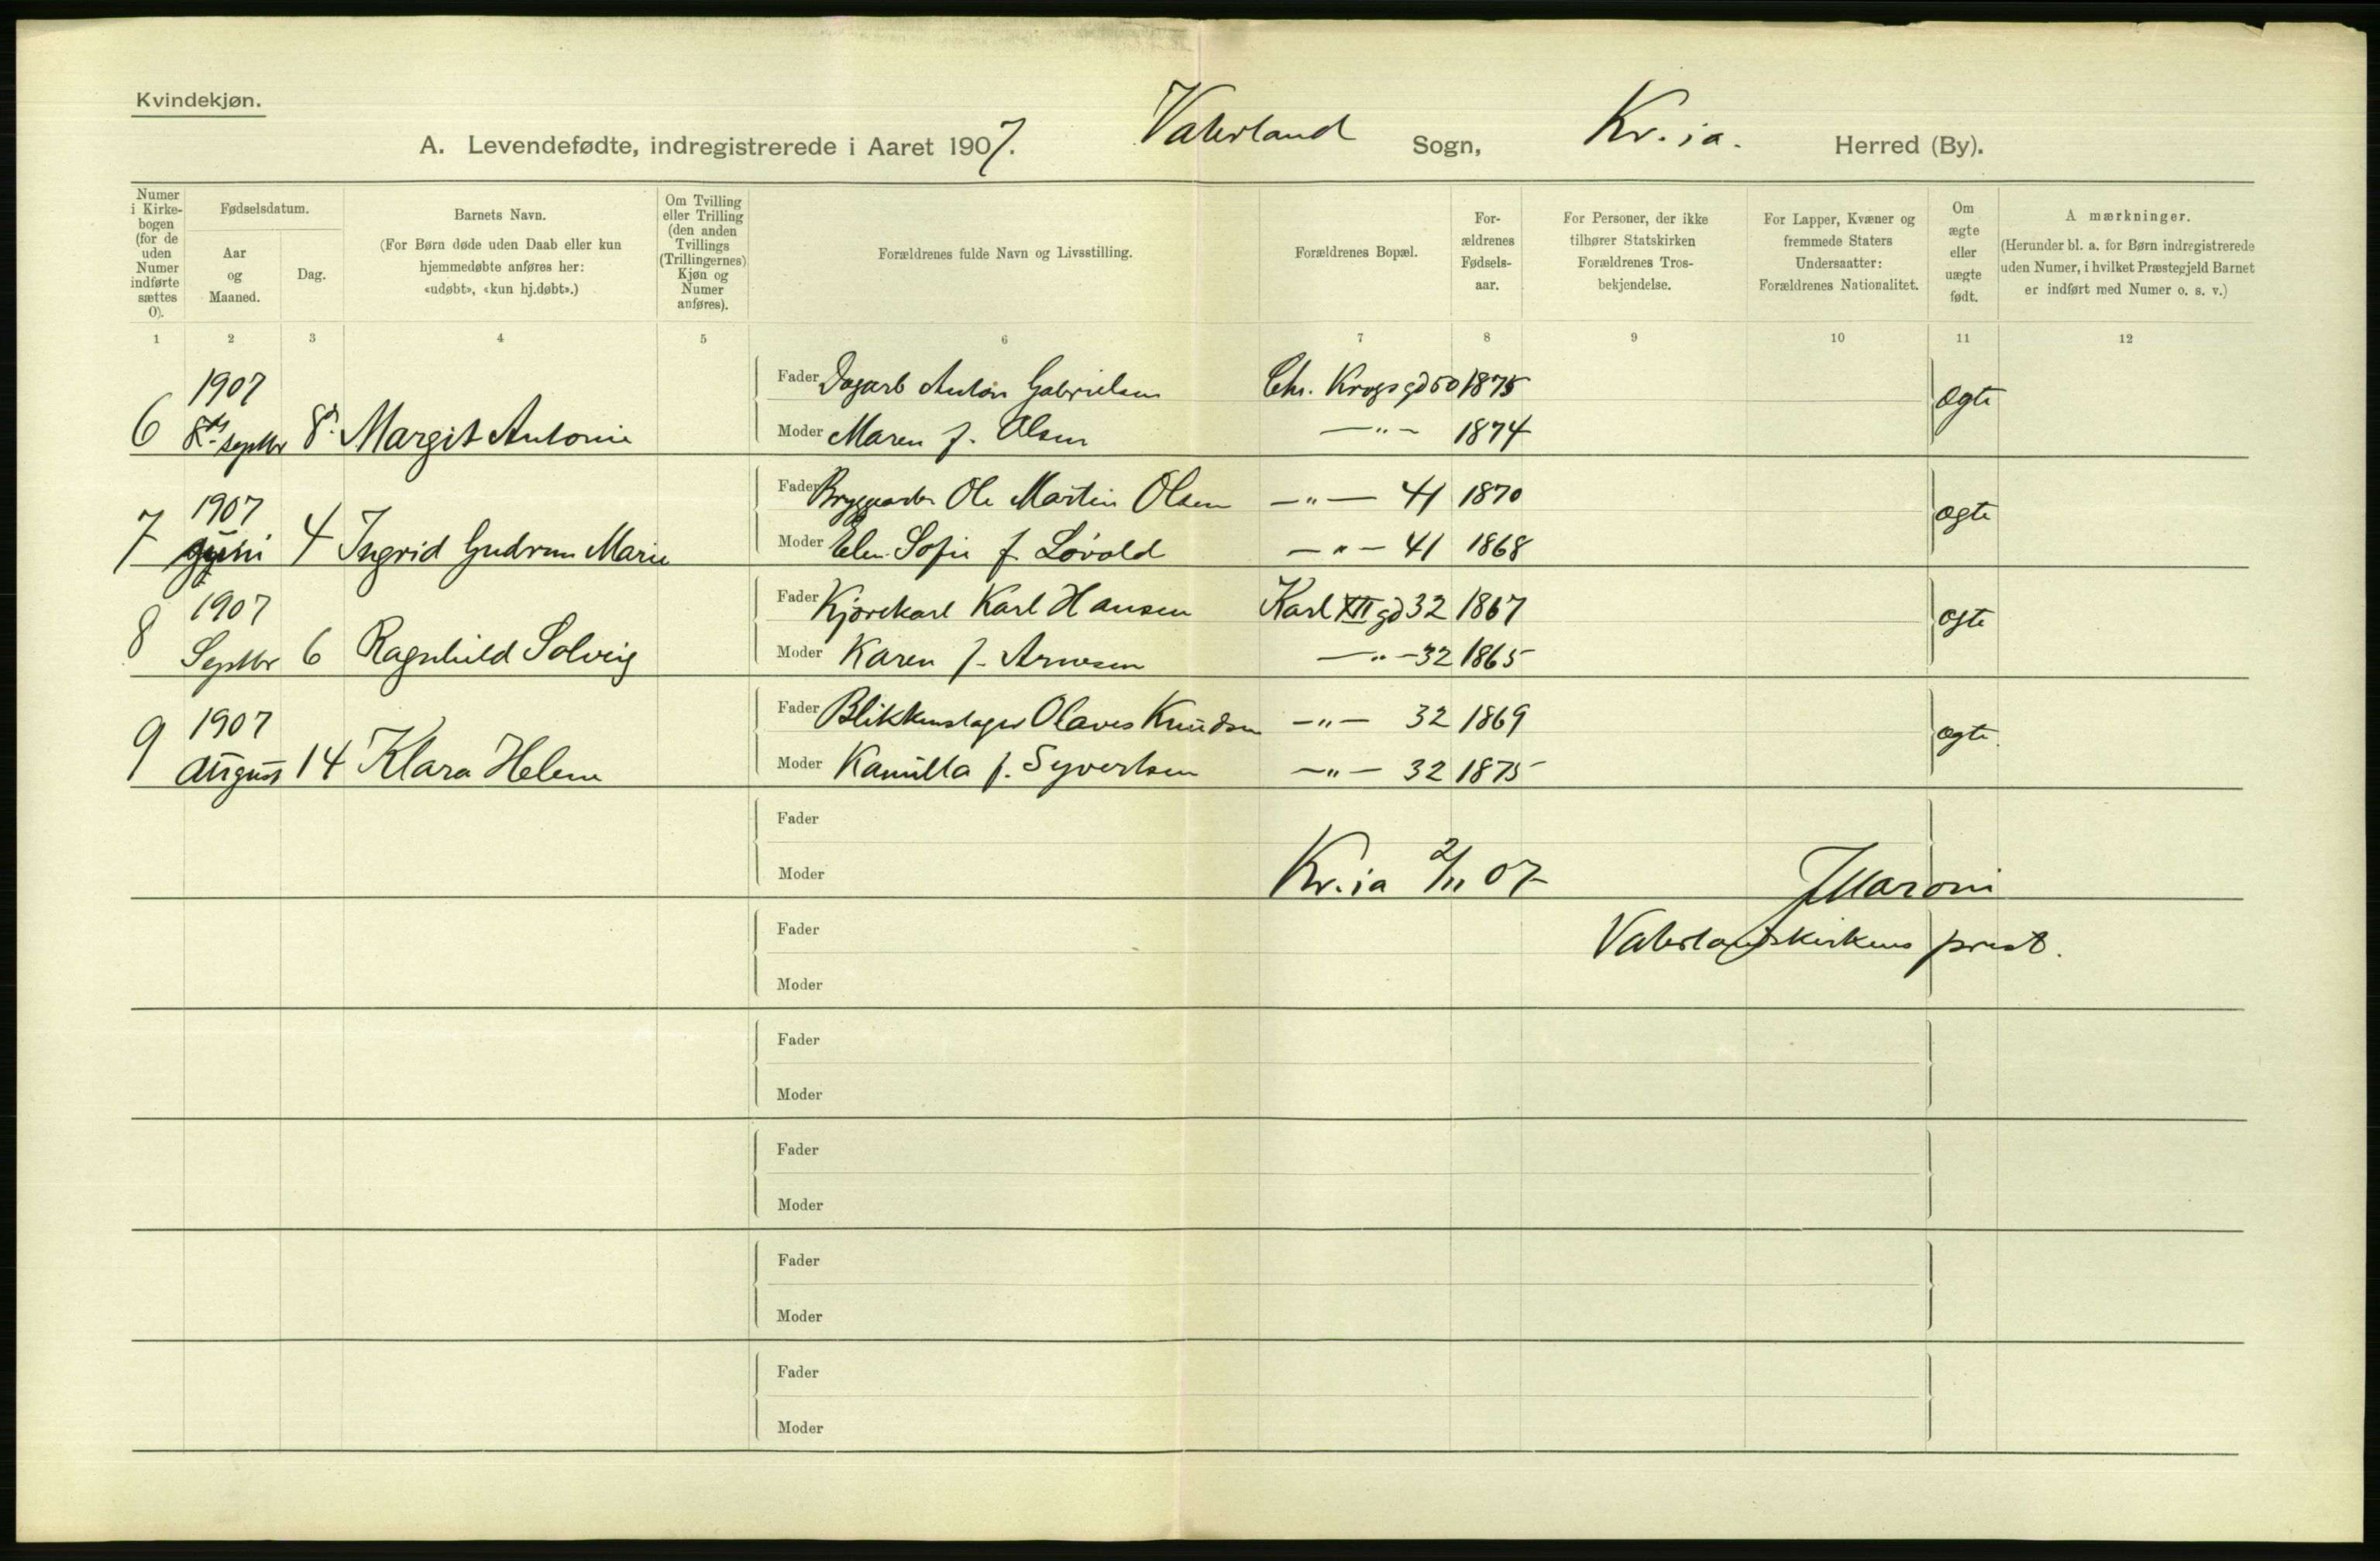 Kvindekjøn.
A. Levendefødte, indregistrerede i Aaret 1907. Vaterland Sogn, Kr.ia. Herred (By).
Numer i Kirkebogen (for de uden Numer indførte sættes 0).
Fødselsdatum.
Aar og Maaned.
Dag.
Barnets Navn.
(For Børn døde uden Daab eller kun hjemmedøbte anføres her: «udøbt», «kun hj.døbt».)
Om Tvilling eller Trilling (den anden Tvillings (Trillingernes) Kjøn og Numer anføres).
Forældrenes fulde Navn og Livsstilling.
Forældrenes Bopæl.
Forældrenes Fødselsaar.
For Personer, der ikke tilhører Statskirken Forældrenes Trosbekjendelse.
For Lapper, Kvæner og fremmede Staters Undersaatter: Forældrenes Nationalitet.
Om ægte eller uægte født.
A mærkninger.
(Herunder bl. a. for Børn indregistrerede uden Numer, i hvilket Præstegjeld Barnet er indført med Numer o. s. v.)
1 2 3 4 5 6 7 8 9 10 11 12
1907 Fader Dagarb Anton Gabrielsen Chr. Krogs gd 50 1875 ægte
6 Septbr 8 Margit Antonie Moder Maren f. Olsen —"— 1874
1907 Fader Bryggearb. Ole Martin Olsen —"— 41 1870 ægte
7 juni 4 Ingrid Gudrun Marie Moder Elen Sofie f. Løvold —"— 41 1868
1907 Fader Kjørekarl Karl Hansen Karl XII gd 32 1867 ægte
8 Septbr 6 Ragnhild Solveig Moder Karen f. Arnesen —"— 32 1865
1907 Fader Blikkenslager Olaves Knudsen —"— 32 1869 ægte.
9 August 14 Klara Helene Moder Kamilla f. Syvertsen —"— 32 1875
Fader
Moder Kr.ia 2/11 07 J Maroni
Fader Vaterlandskirkens prest.
Moder
Fader
Moder
Fader
Moder
Fader
Moder
Fader
Moder